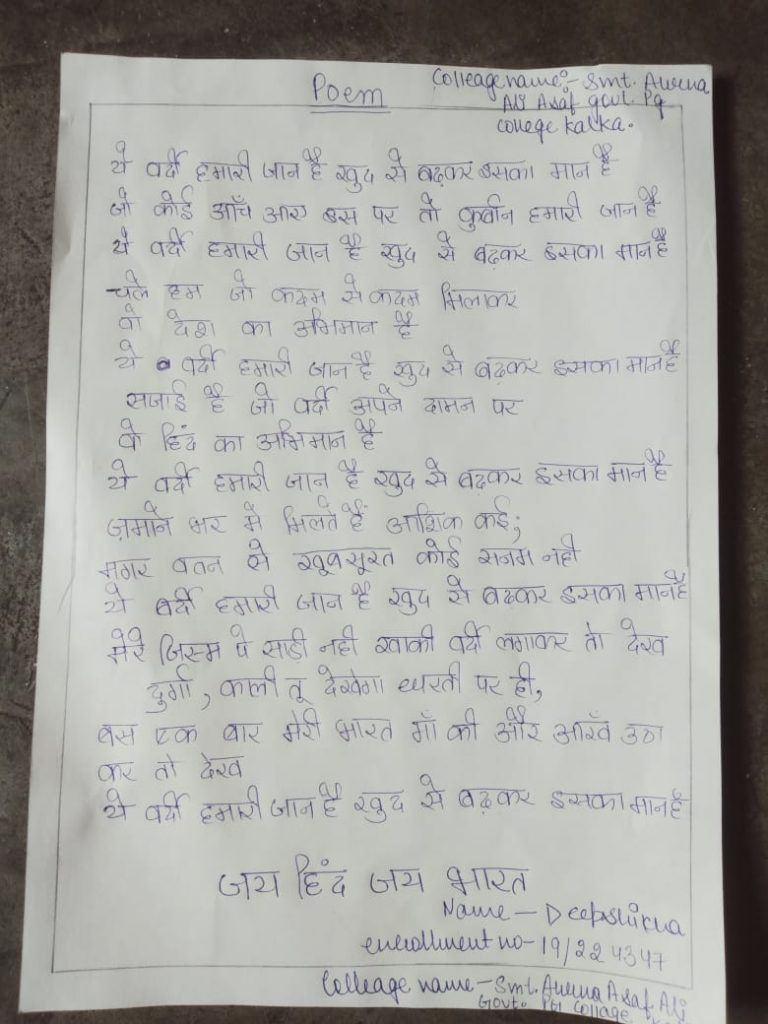 Poem
Colleage name:- Smt. Aruna
Ali Asaf govt. Pg
college Kalka.
ये वर्दी हमारी जान है खुद से बढ़कर इसका मान है
जो कोई आँच आए इस पर तो कुर्बान हमारी जान है
ये वर्दी हमारी जान है खुद से बढ़कर इसका मान है
चले हम जो कदम से कदम मिलाकर
वो देश का अभिमान है
ये वर्दी हमारी जान है खुद से बढ़कर इसका मान है
सजाई है जो वर्दी अपने दामन पर
वो हिंद का अभिमान है
ये वर्दी हमारी जान है खुद से बढ़कर इसका मान है
ज़माने भर मे मिलते हैं आशिक कई;
मगर वतन से खूबसूरत कोई सनम नही
ये वर्दी हमारी जान है खुद से बढ़कर इसका मान है
मेरे जिस्म पे साड़ी नही खाकी वर्दी लगाकर तो देख
दुर्गा, काली तू देखेगा धरती पर ही,
बस एक बार मेरी भारत माँ की और आँख उठा
कर तो देख
ये वर्दी हमारी जान है खुद से बढ़कर इसका मान है
जय हिंद जय भारत
Name - Deepshikha
enrollment no- 19/224347
Colleage name - Smt. Aruna Asaf Ali
Govt. PG Collage